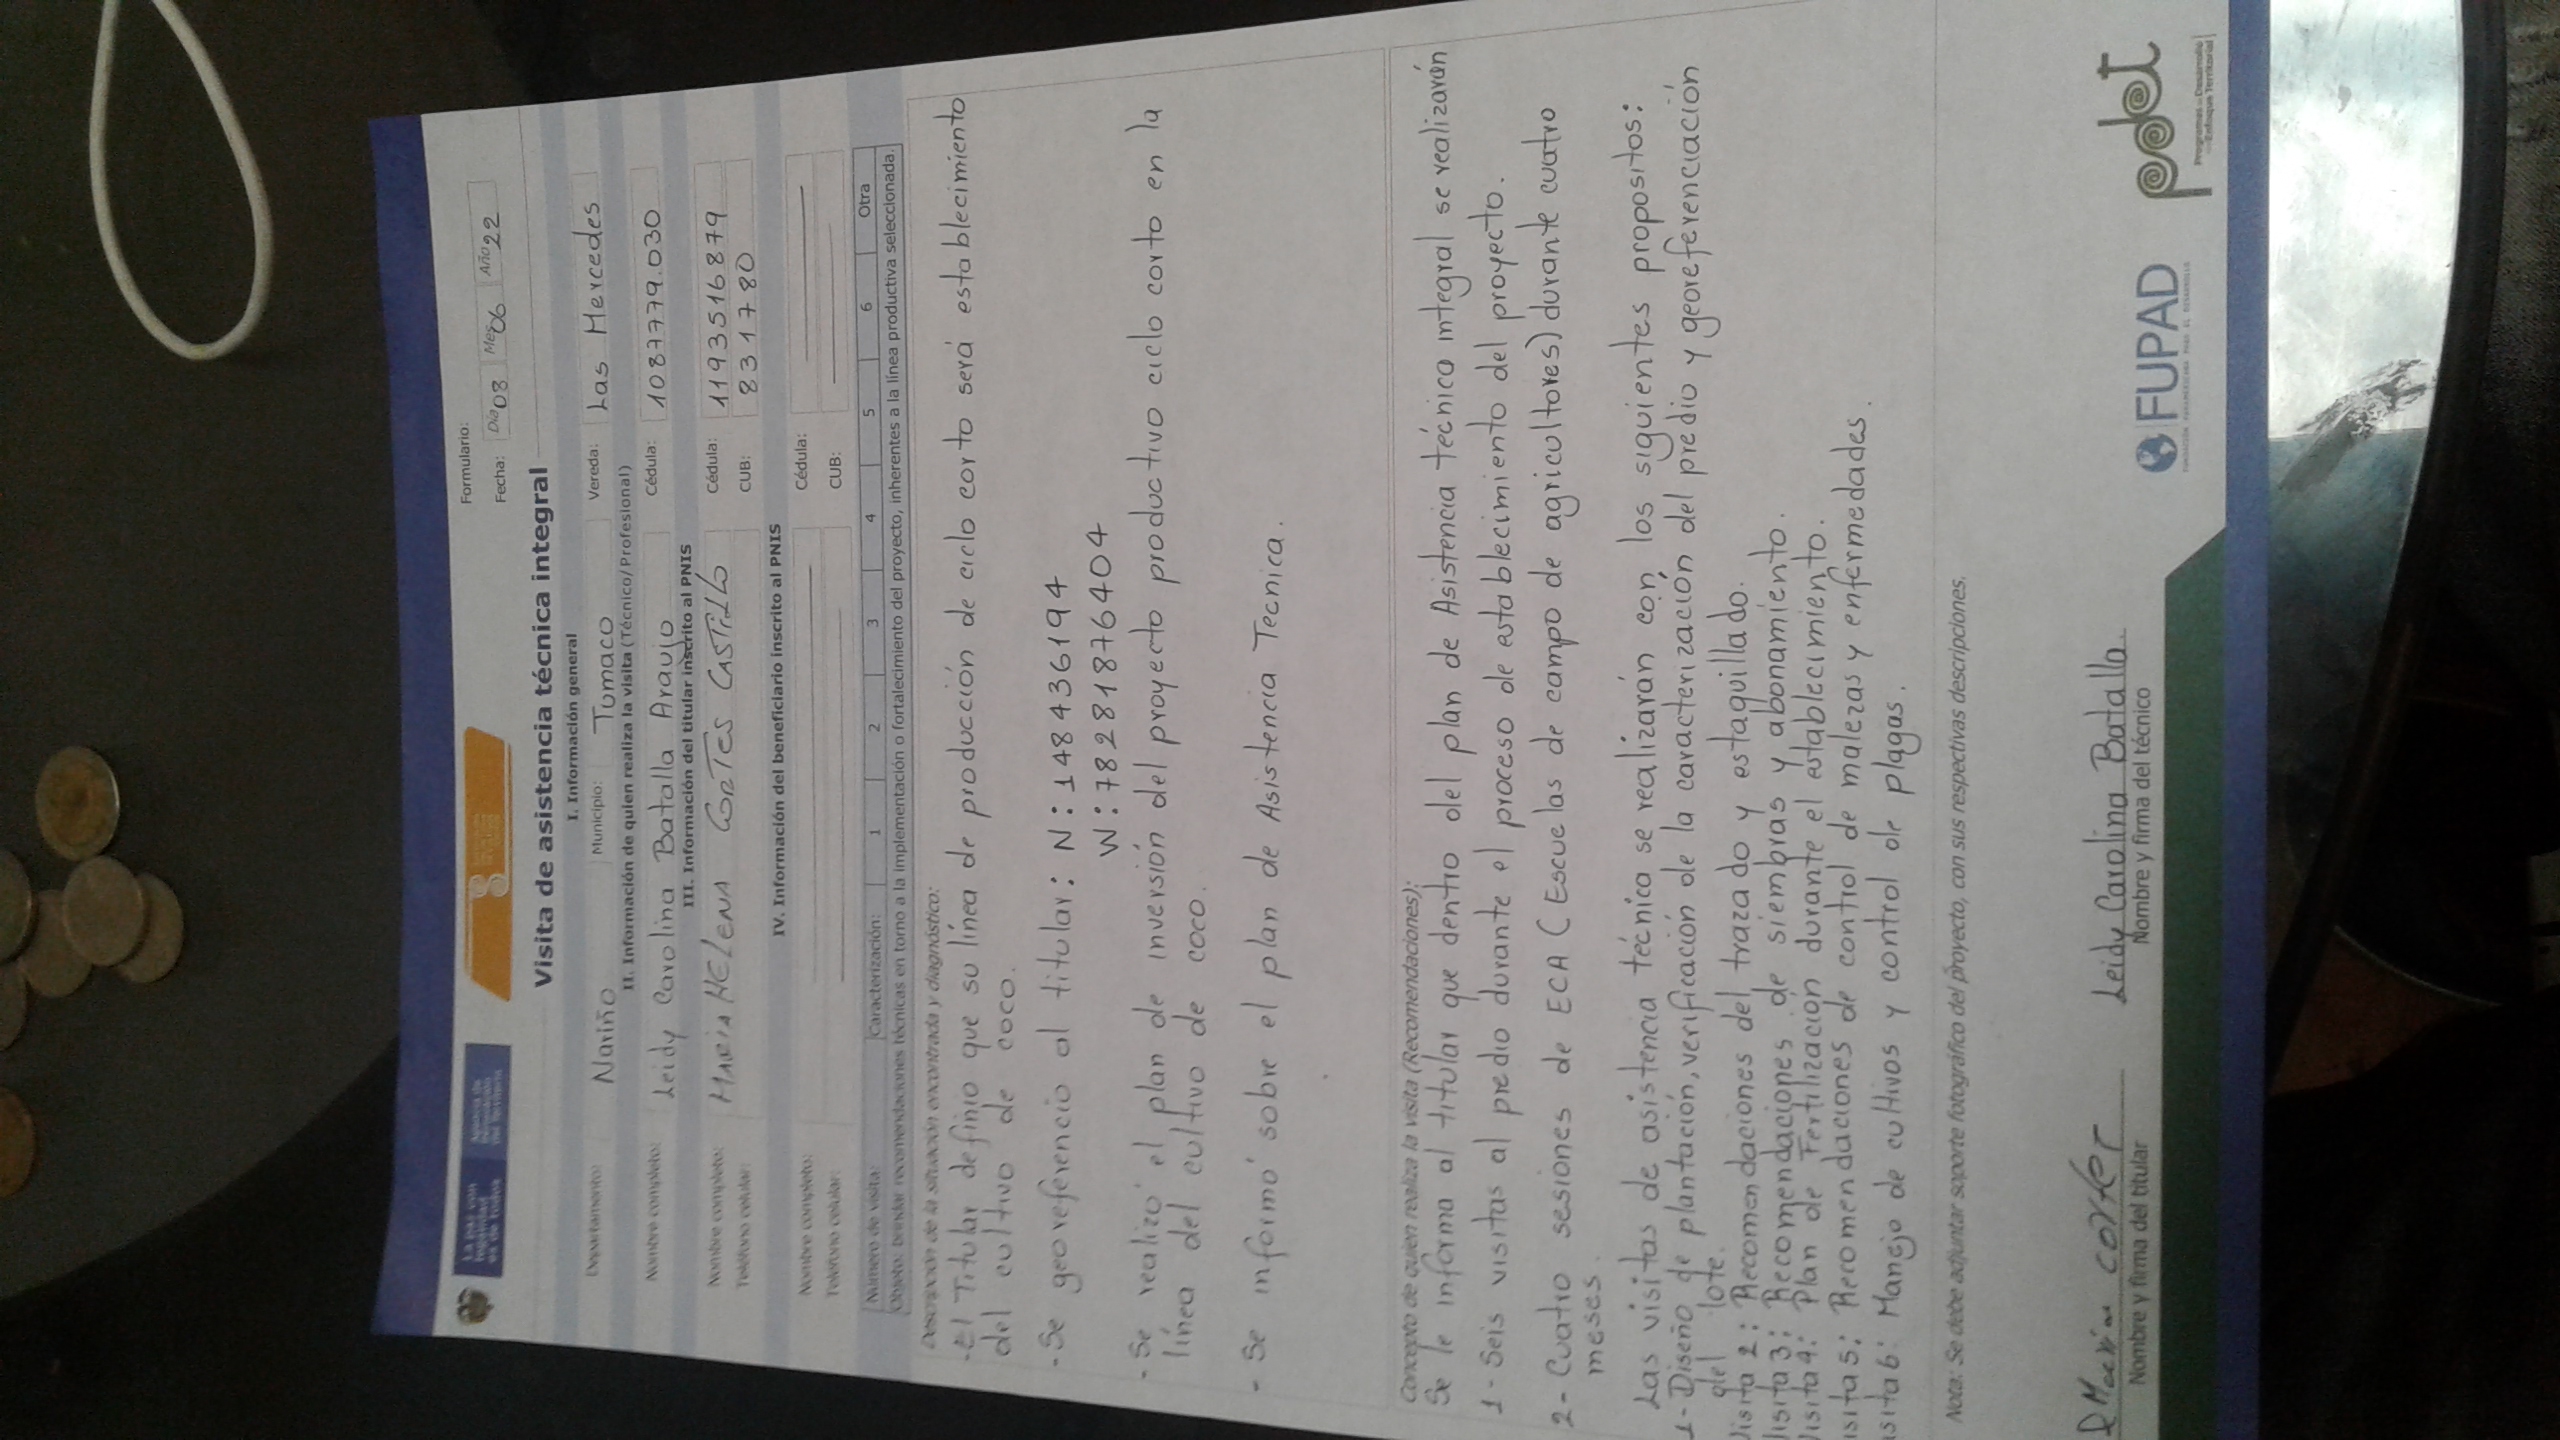 La paz con
legalidad
es de todos
Formulario:
Fecha: Día 03 Mes 06 Año 22
Visita de asistencia técnica integral
I. Información general
Departamento: Nariño Municipio: Tumaco Vereda: Las Mercedes
II. Información de quien realiza la visita (Técnico/Profesional)
Nombre completo: Leidy Carolina Batalla Araujo Cédula: 1087779.030
III. Información del titular inscrito al PNIS
Nombre completo: MARIA HELENA CORTES CASTILLO Cédula: 1193516879
Teléfono celular: CUB: 8317780
IV. Información del beneficiario inscrito al PNIS
Nombre completo: Cédula:
Teléfono celular: CUB:
Número de visita: Caracterización: 1 2 3 4 5 6 Otra
Objeto: brindar recomendaciones técnicas en torno a la implementación o fortalecimiento del proyecto, inherentes a la línea productiva seleccionada.
Descripción de la situación encontrada y diagnóstico:
- El Titular definio que su línea de producción de ciclo corto será establecimiento
del cultivo de coco.
- Se georeferencio al titular: N: 148436194
W: 78281876404
- Se realizó el plan de inversión del proyecto productivo ciclo corto en la
línea del cultivo de coco.
- Se informó sobre el plan de Asistencia Tecnica.
Concepto de quien realiza la visita (Recomendaciones):
Se le informa al titular que dentro del plan de Asistencia técnica integral se realizarán
1- Seis visitas al predio durante el proceso de establecimiento del proyecto.
2- Cuatro sesiones de ECA (Escuelas de campo de agricultores) durante cuatro
meses.
Las visitas de asistencia técnica se realizarán con los siguientes propositos:
1- Diseño de plantación, verificación de la caracterización del predio y georeferenciación
del lote.
Visita 2: Recomendaciones del trazado y estaquillado.
Visita 3: Recomendaciones de siembras y abonamiento.
Visita 4: Plan de Fertilización durante el establecimiento.
isita 5: Recomendaciones de control de malezas y enfermedades.
sita 6: Manejo de cultivos y control de plagas.
Nota: Se debe adjuntar soporte fotográfico del proyecto, con sus respectivas descripciones.
Maria cortes Leidy Carolina Batalla.
Nombre y firma del titular Nombre y firma del técnico
FUPAD
FUNDACIÓN PANAMERICANA PARA EL DESARROLLO
pdet
Programas de Desarrollo
con Enfoque Territorial